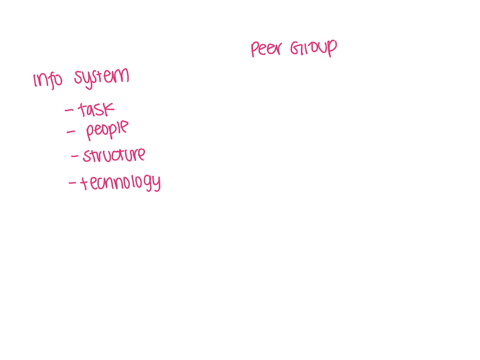 Peer Group
info system
- task
- people
- structure
- technology